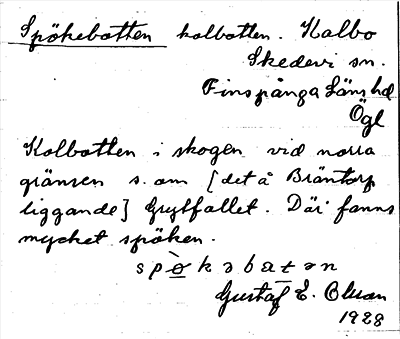 Spökebotten kolbotten. Kalbo
Skedevi sn.
Finspånga Läns hd
Ögl
Kolbotten i skogen vid norra
gränsen s. om [det å Bräntorp
liggande] Grytfallet. Där fanns
mycket spöken.
spökəbåtən
Gustaf E. Olsson
1928